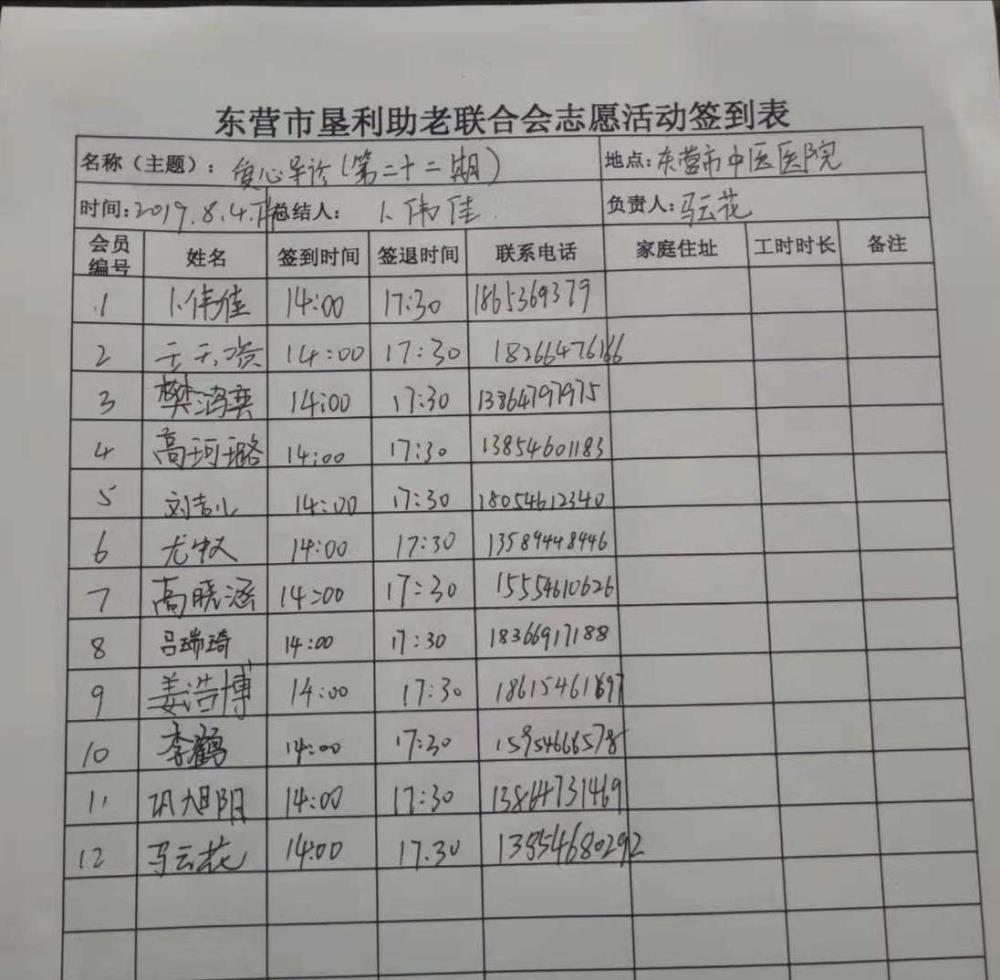 东营市垦利助老联合会志愿活动签到表
名称（主题）：爱心导诊（第二十二期） 地点：东营市中医医院
时间：2019.8.4.下午 总结人：卜伟佳 负责人：马云花
会员编号 姓名 签到时间 签退时间 联系电话 家庭住址 工时时长 备注
1 卜伟佳 14:00 17:30 1865369379
2 14:00 17:30 18266476166
3 樊鸿奕 14:00 17:30 13864797975
4 高珂璐 14:00 17:30 13854601183
5 刘吉儿 14:00 17:30 18054612340
6 14:00 17:30 13589448446
7 高晓涵 14:00 17:30 15554610626
8 吕瑞琦 14:00 17:30 18366917188
9 姜浩博 14:00 17:30 18615461897
10 李鹤 14:00 17:30 15954666578
11 巩旭阳 14:00 17:30 13864731469
12 马云花 14:00 17.30 13854680292